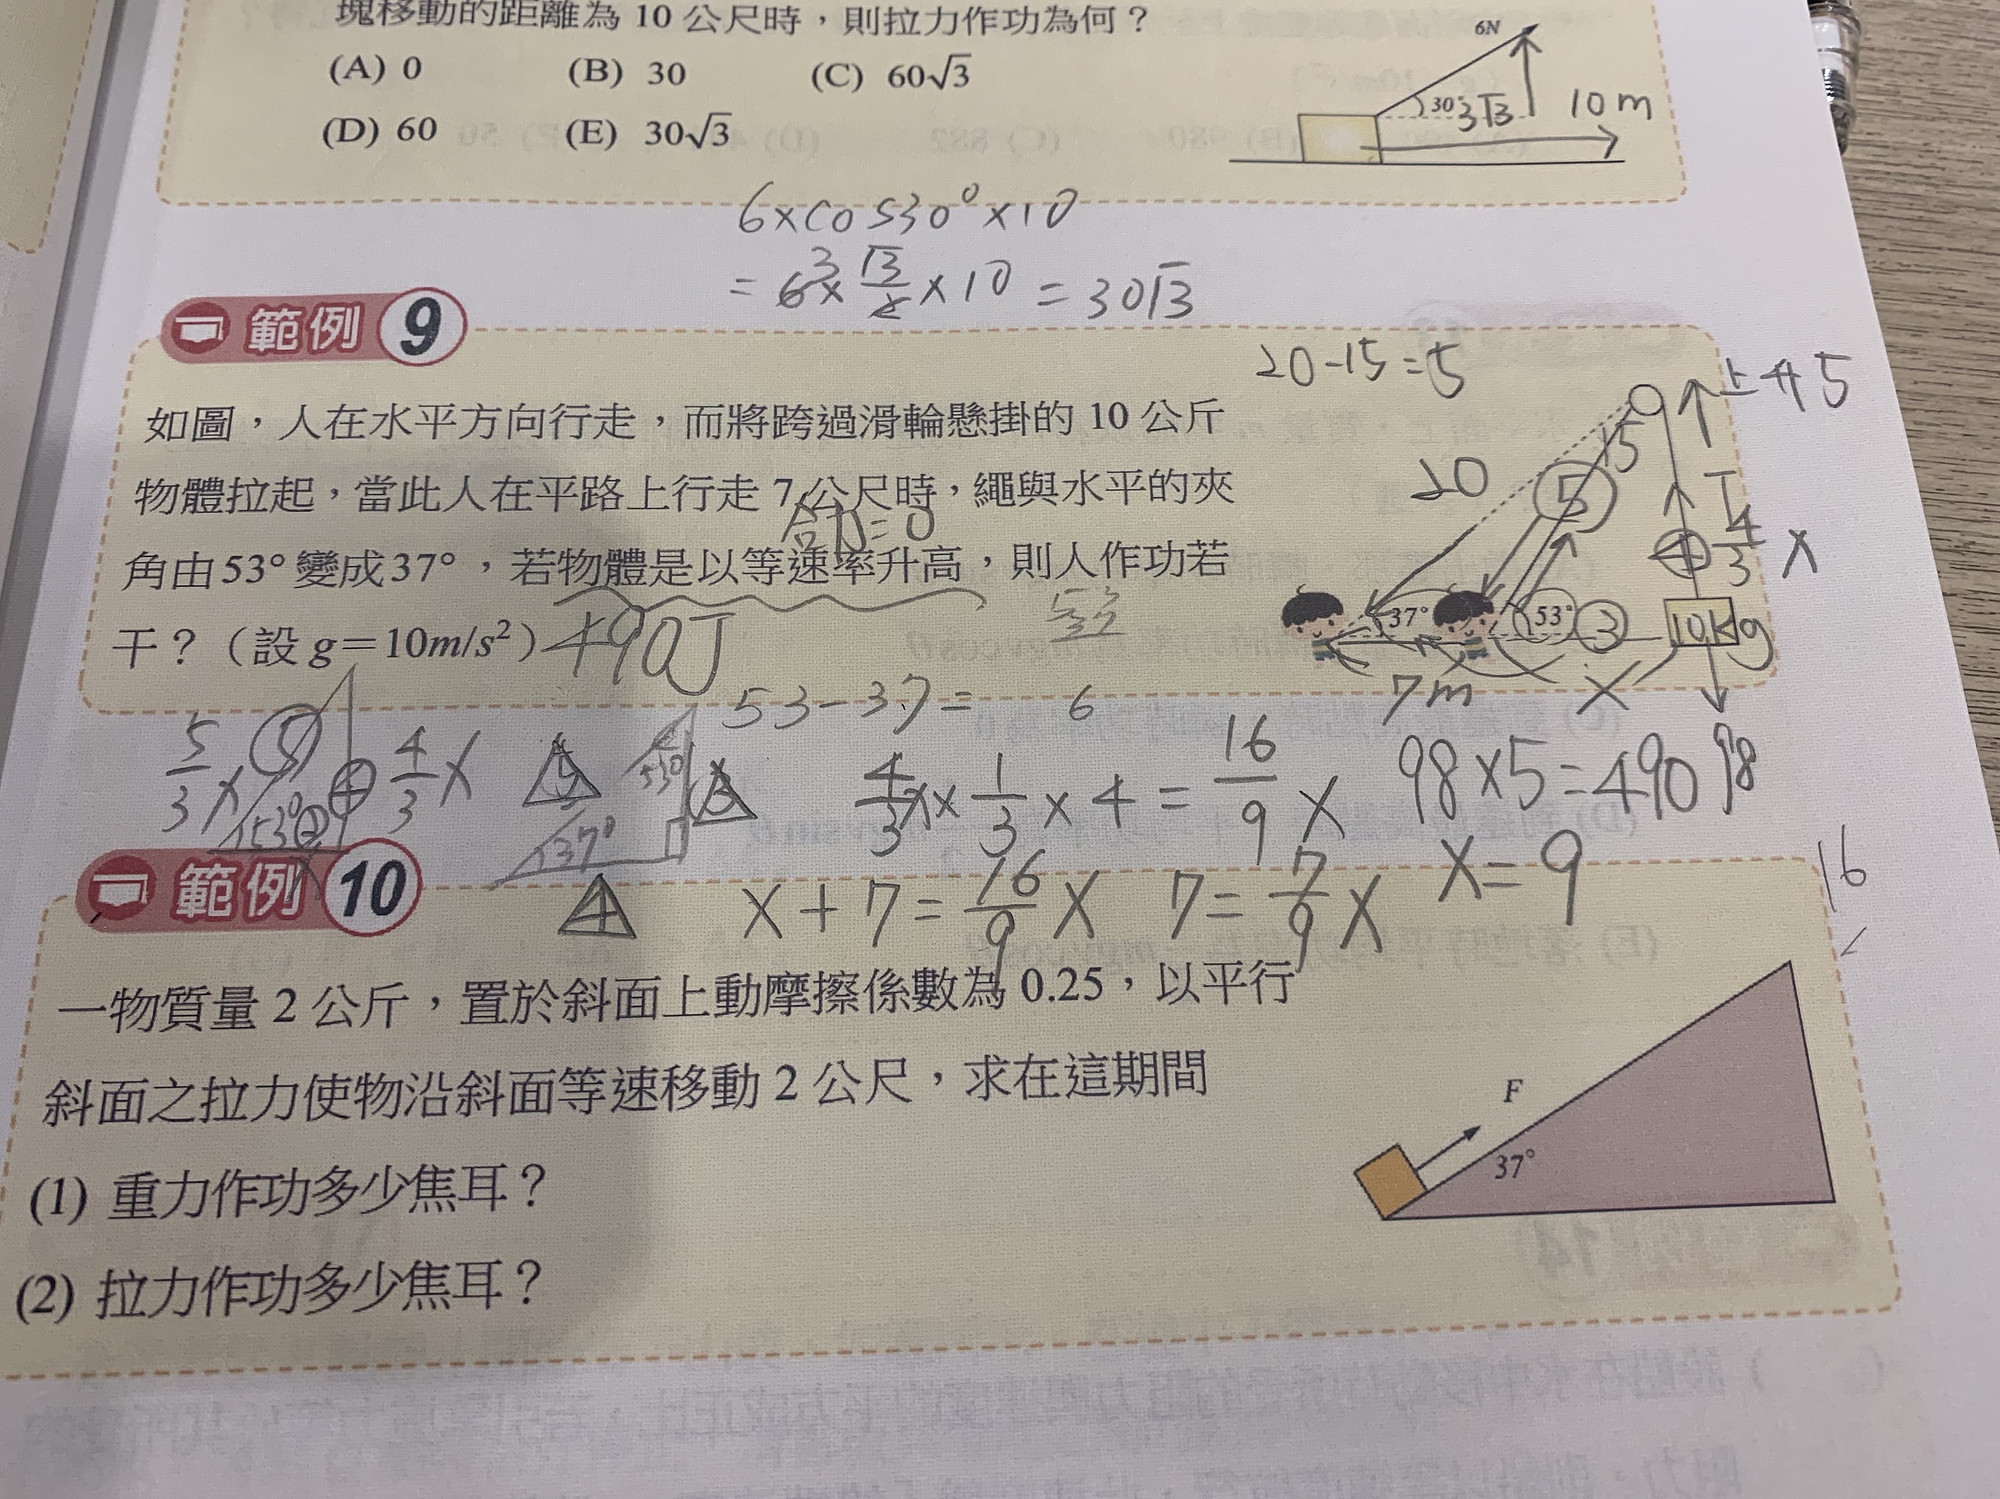 塊移動的距離為 10 公尺時，則拉力作功為何？
(A) 0 (B) 30 (C) 60√3
(D) 60 (E) 30√3
6N
30°
3√3
10 m
6×cos30°×10
= 6×√3/2×10 = 30√3
3
範例 9
20-15=5
如圖，人在水平方向行走，而將跨過滑輪懸掛的 10 公斤
物體拉起，當此人在平路上行走 7 公尺時，繩與水平的夾
合力=0
角由53° 變成37°，若物體是以等速率升高，則人作功若
干？（設 g＝10m/s²）490J
上升5
15
20
5
T
4
4/3 x
37°
53°
3
10kg
7m
x
98
53-37=
6
5/3 x
5
4
4/3 x
53°
3
x
5
53°
3
37°
4
4/3 x × 1/3 × 4 = 16/9 x
98×5=490
x+7=16/9 x
7=7/9 x
x=9
16
範例 10
一物質量 2 公斤，置於斜面上動摩擦係數為 0.25，以平行
斜面之拉力使物沿斜面等速移動 2 公尺，求在這期間
(1) 重力作功多少焦耳？
(2) 拉力作功多少焦耳？
F
37°